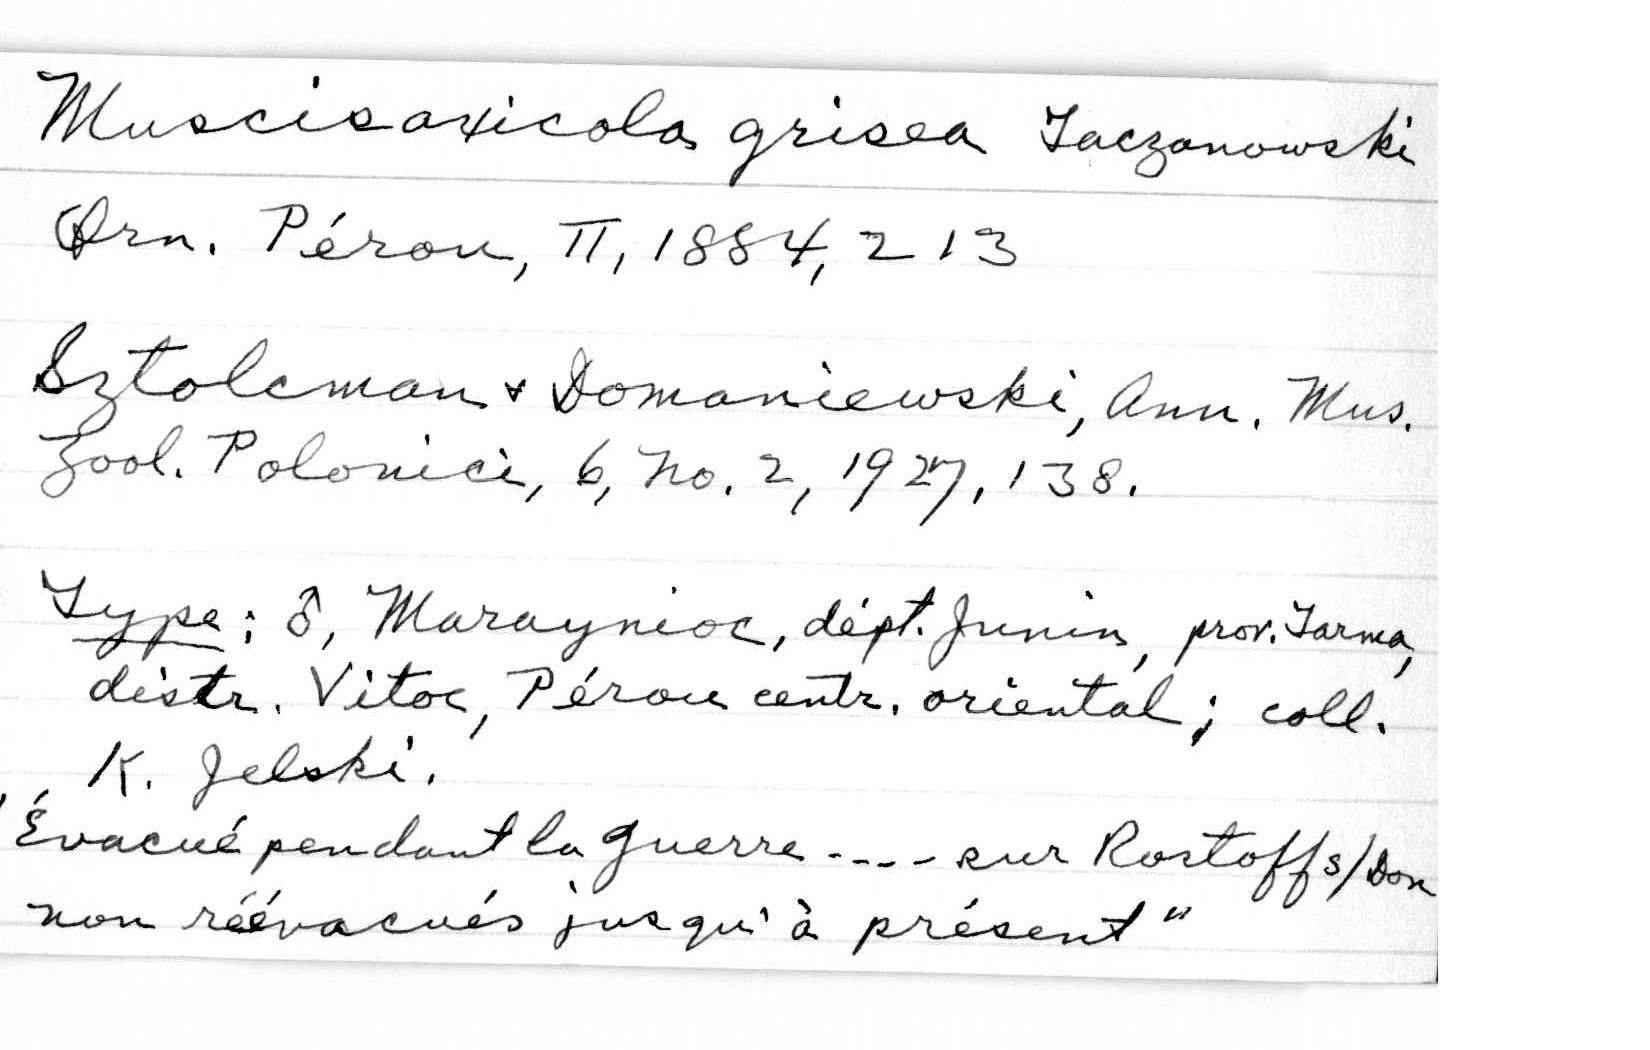 Muscisaxicola grisea Taczanowski
Orn. Pérou, II, 1884, 213
Sztolcman & Domaniewski, Ann. Mus.
Zool. Polonici, 6, No. 2, 1927, 138.
Type: ♂, Maraynioc, dépt. Junin, prov. Tarma,
distr. Vitoc, Pérou centr. oriental; coll.
K. Jelski.
"Évacué pendant la guerre ---- sur Rostoff s/Don
non réévacués jusqu'à présent"